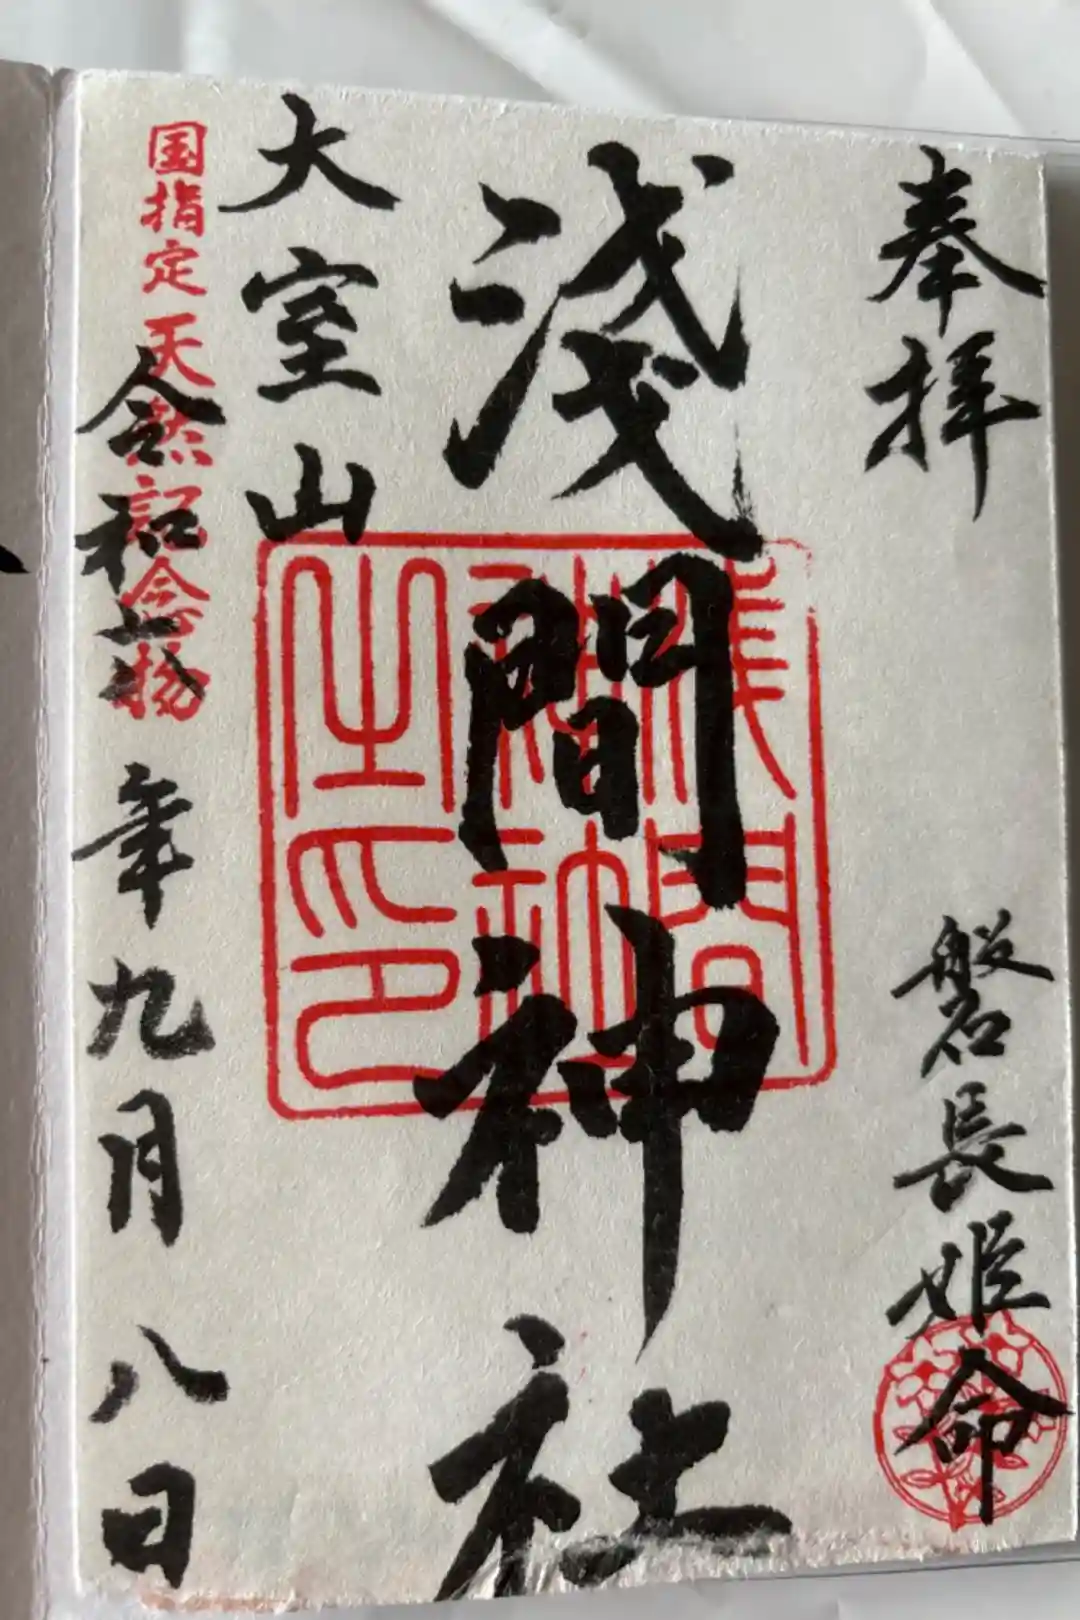 奉拝
磐長姫命
淺間神社
淺間
神社
之印
大室山
国指定天然記念物
令和六年九月八日